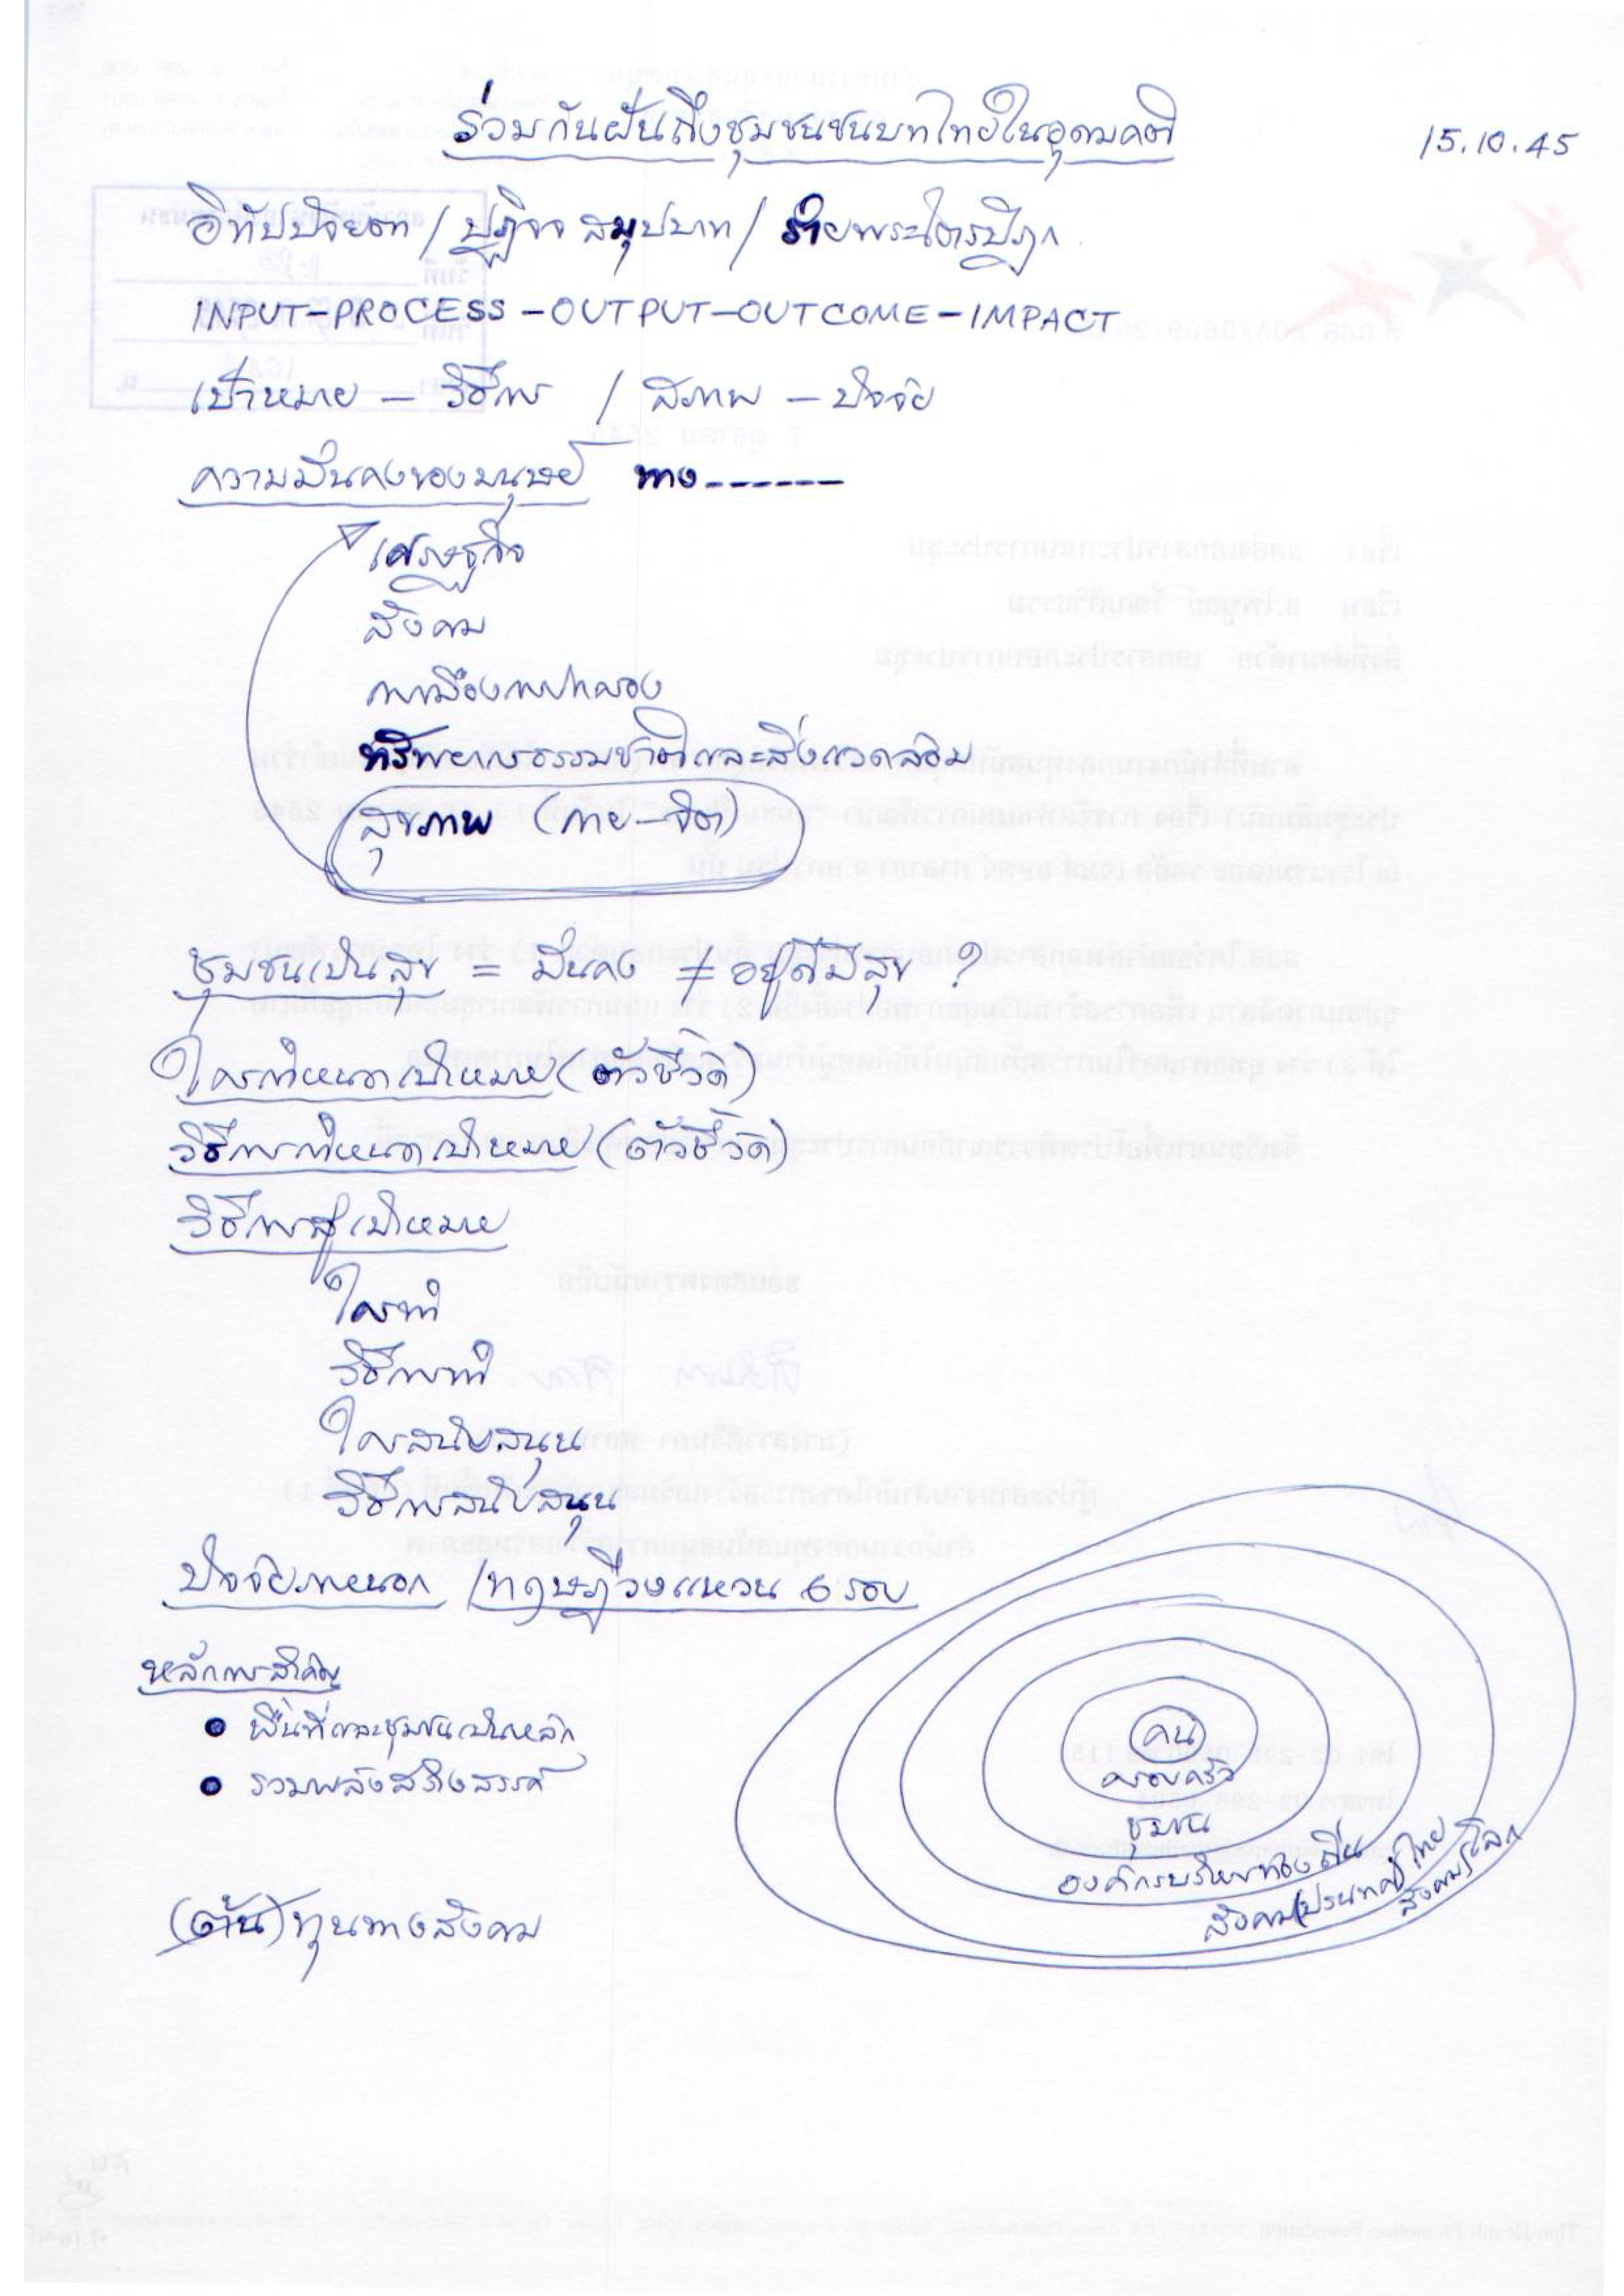 ร่วมกันฝันถึงชุมชนชนบทไทยในอุดมคติ
15.10.45
อิทัปปัจยตา / ปฏิจจสมุปบาท / ร่ายพระไตรปิฎก
INPUT-PROCESS-OUTPUT-OUTCOME-IMPACT
เป้าหมาย – วิธีการ / สภาพ – ปัจจัย
ความมั่นคงของมนุษย์ ทาง------
เศรษฐกิจ
สังคม
การเมืองการปกครอง
ทรัพยากรธรรมชาติและสิ่งแวดล้อม
สุขภาพ (กาย-จิต)
ชุมชนเป็นสุข = มั่นคง ≠ อยู่ดีมีสุข ?
ใครกำหนดเป้าหมาย (ตัวชี้วัด)
วิธีการกำหนดเป้าหมาย (ตัวชี้วัด)
วิธีการสู่เป้าหมาย
ใครทำ
วิธีการทำ
ใครสนับสนุน
วิธีการสนับสนุน
ปัจจัยภายนอก / ทฤษฎีวงแหวน 6 รอบ
หลักการสำคัญ
• พื้นที่และชุมชนเป็นหลัก
• รวมพลังสร้างสรรค์
(ต้น) ทุนทางสังคม
คน
ครอบครัว
ชุมชน
องค์กรบริหารท้องถิ่น
สังคม(ประเทศ)ไทย
สังคมโลก